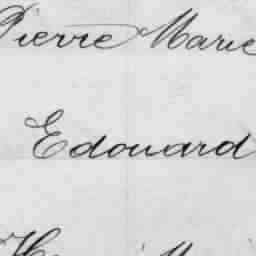 Pierre Marie
Edouard